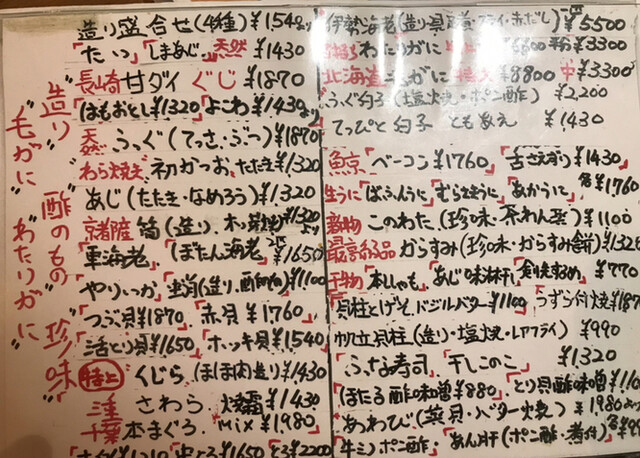 造り 酢のもの 珍味
毛がに わたりがに
造り盛合せ(4種)¥1540より
「たい」「しまあじ」天然 ¥1430
長崎 甘ダイ ぐじ ¥1870
「はもおとし¥1320」よこわ ¥1430より
天然 ふっぐ(てっさ・ぶつ)¥1870
わら焼き 初かつお たたき ¥1320
あじ(たたき・なめろう)¥1320
京都産 筍(造り、木 ¥1320より
「車海老」「ぼたん海老」¥1650
やりいか (造り、酢 ¥1100
「つぶ貝¥1870」「赤貝 ¥1760」
「活とり貝¥1650」「ホッキ貝¥1540」
特上 くじら(ほほ肉造り)¥1430
三重 さわら 焼霜 ¥1430
千葉 本まぐろ mix ¥1980
¥1650 ¥2200
伊勢海老(造り フライ・赤だし) ¥5500
わたりがに ¥3300
北海道毛がに 特大 ¥8800 中 ¥3300
ふぐ白子(塩焼・ポン酢) ¥2200
てっぴと白子 ともあえ ¥1430
鯨「ベーコン ¥1760」「舌さえずり ¥1430
生うに「ばふんうに」「むらさきうに」「あかうに」各¥1760
このわた(珍味・茶わん蒸)¥1100
最高級品 からすみ(珍味・からすみ餅)¥1320
干物「本ししゃも」「あじ味淋干し」 するめ」¥770
貝柱とげそ バジルバター ¥1100「うずら付焼 ¥187
帆立貝柱(造り・塩焼・レアフライ) ¥990
「ふな寿司」「干しこのこ」 ¥1320
「ほたる酢味噌¥880」「とり貝酢味噌 ¥110
あわび(・バター焼) ¥1980より
「牛ミノポン酢」「あん肝(ポン酢・煮付)